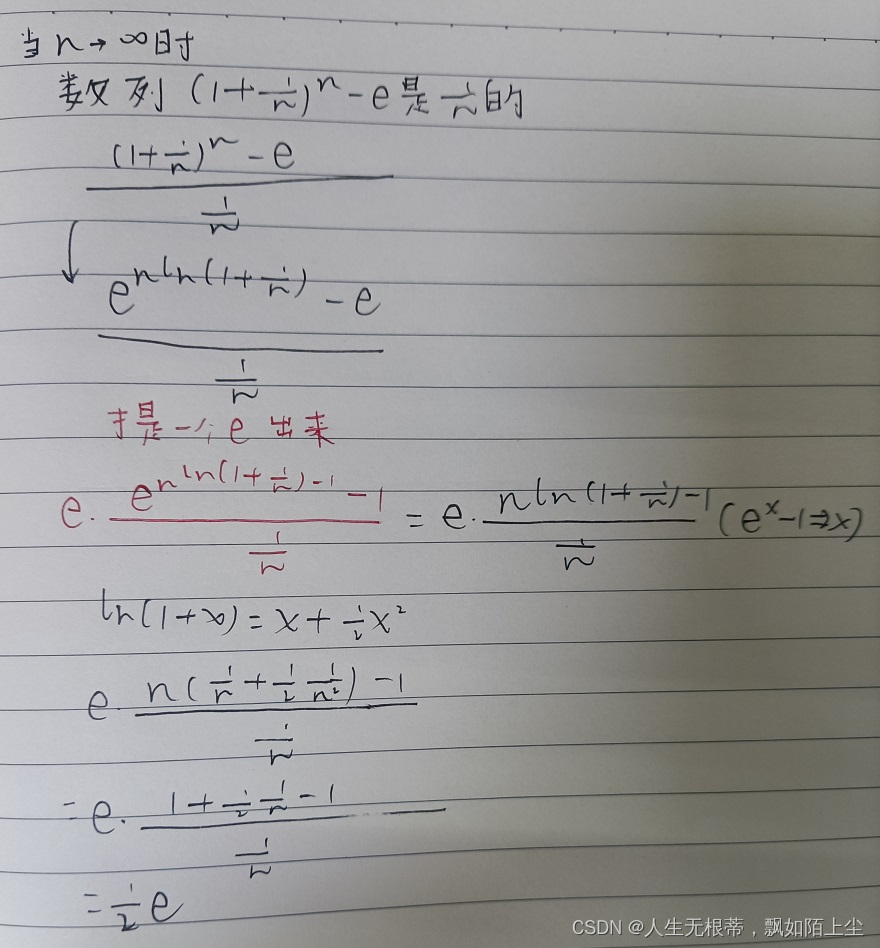 当 n→∞时
数列 (1+1/n)^n - e 是 1/n 的
((1+1/n)^n - e) / (1/n)
↓ (e^(n ln(1+1/n)) - e) / (1/n)
提一个 e 出来
e · (e^(n ln(1+1/n) - 1) - 1) / (1/n) = e · (n ln(1+1/n) - 1) / (1/n) (e^x - 1 ⇒ x)
ln(1+x) = x + 1/2 x²
e · (n(1/n + 1/2 1/n²) - 1) / (1/n)
= e · (1 + 1/2 1/n - 1) / (1/n)
= 1/2 e
CSDN @人生无根蒂，飘如陌上尘